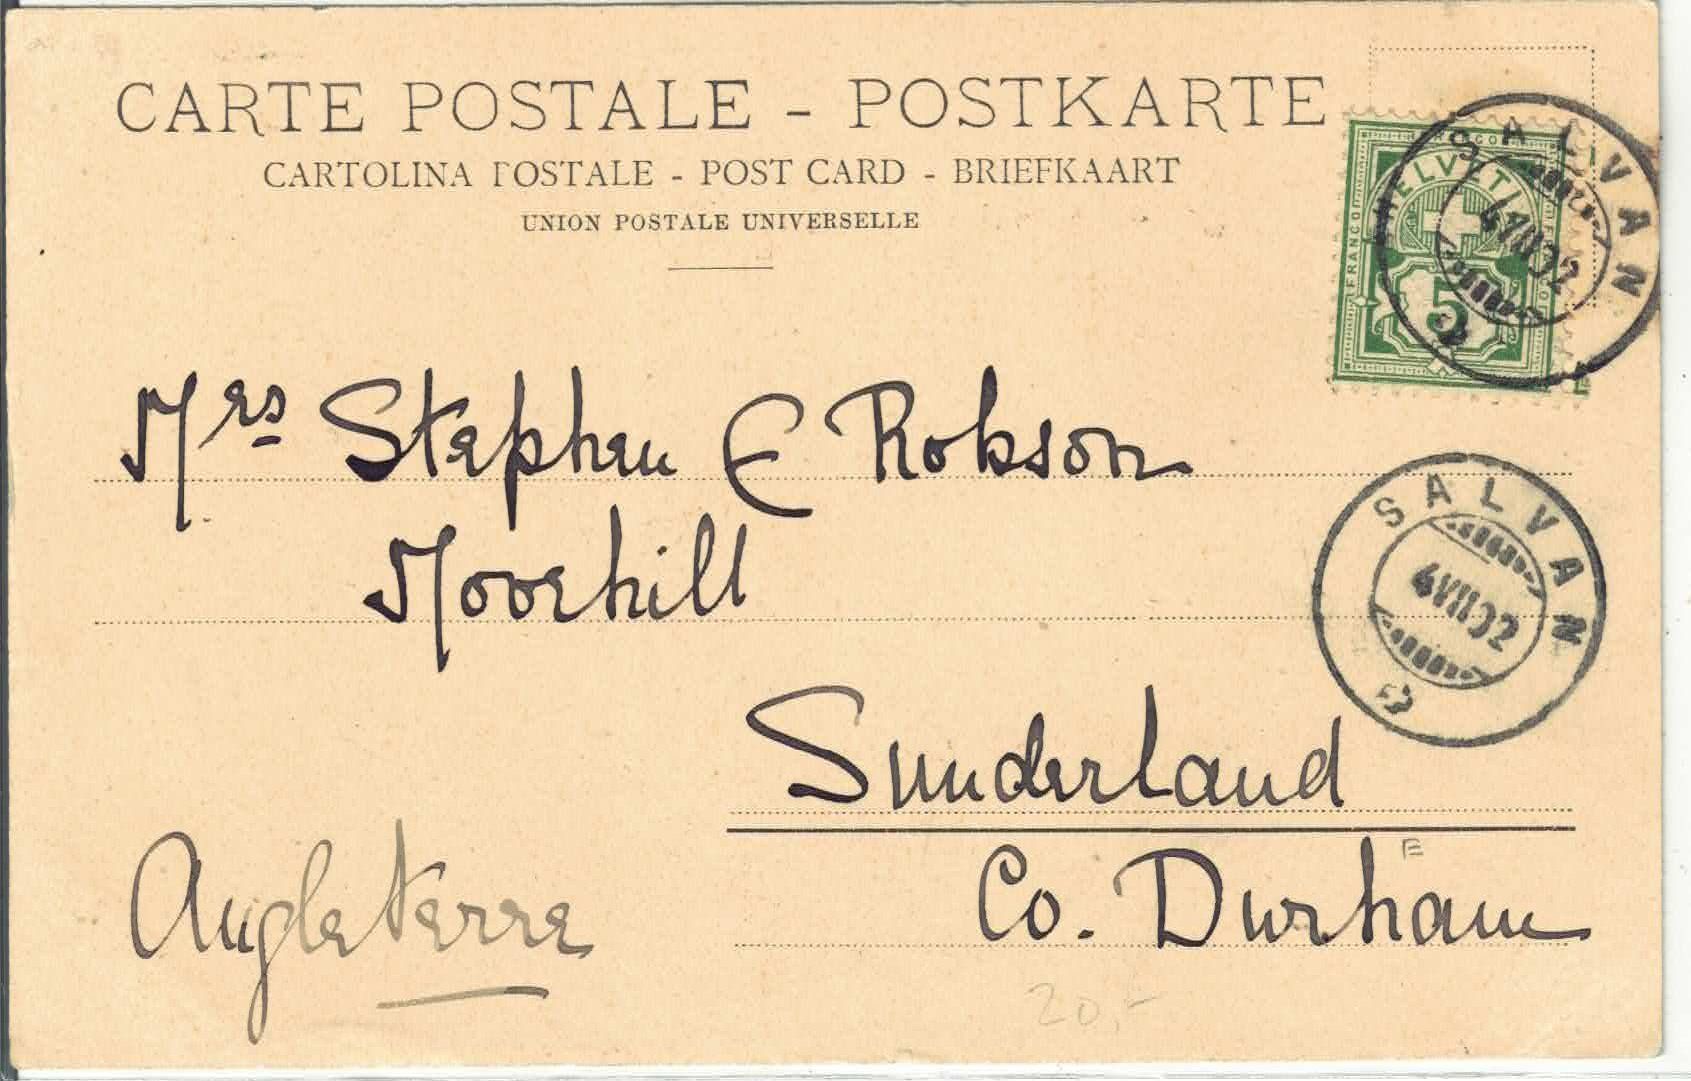 CARTE POSTALE - POSTKARTE
CARTOLINA POSTALE - POST CARD - BRIEFKAART
UNION POSTALE UNIVERSELLE
HELVETIA
FRANCO
5
SALVAN
4 VII 02
Mrs Stephen E Robson
Moorhill
SALVAN
4 VII 02
Sunderland
Co. Durham
E
Angleterre
20,-